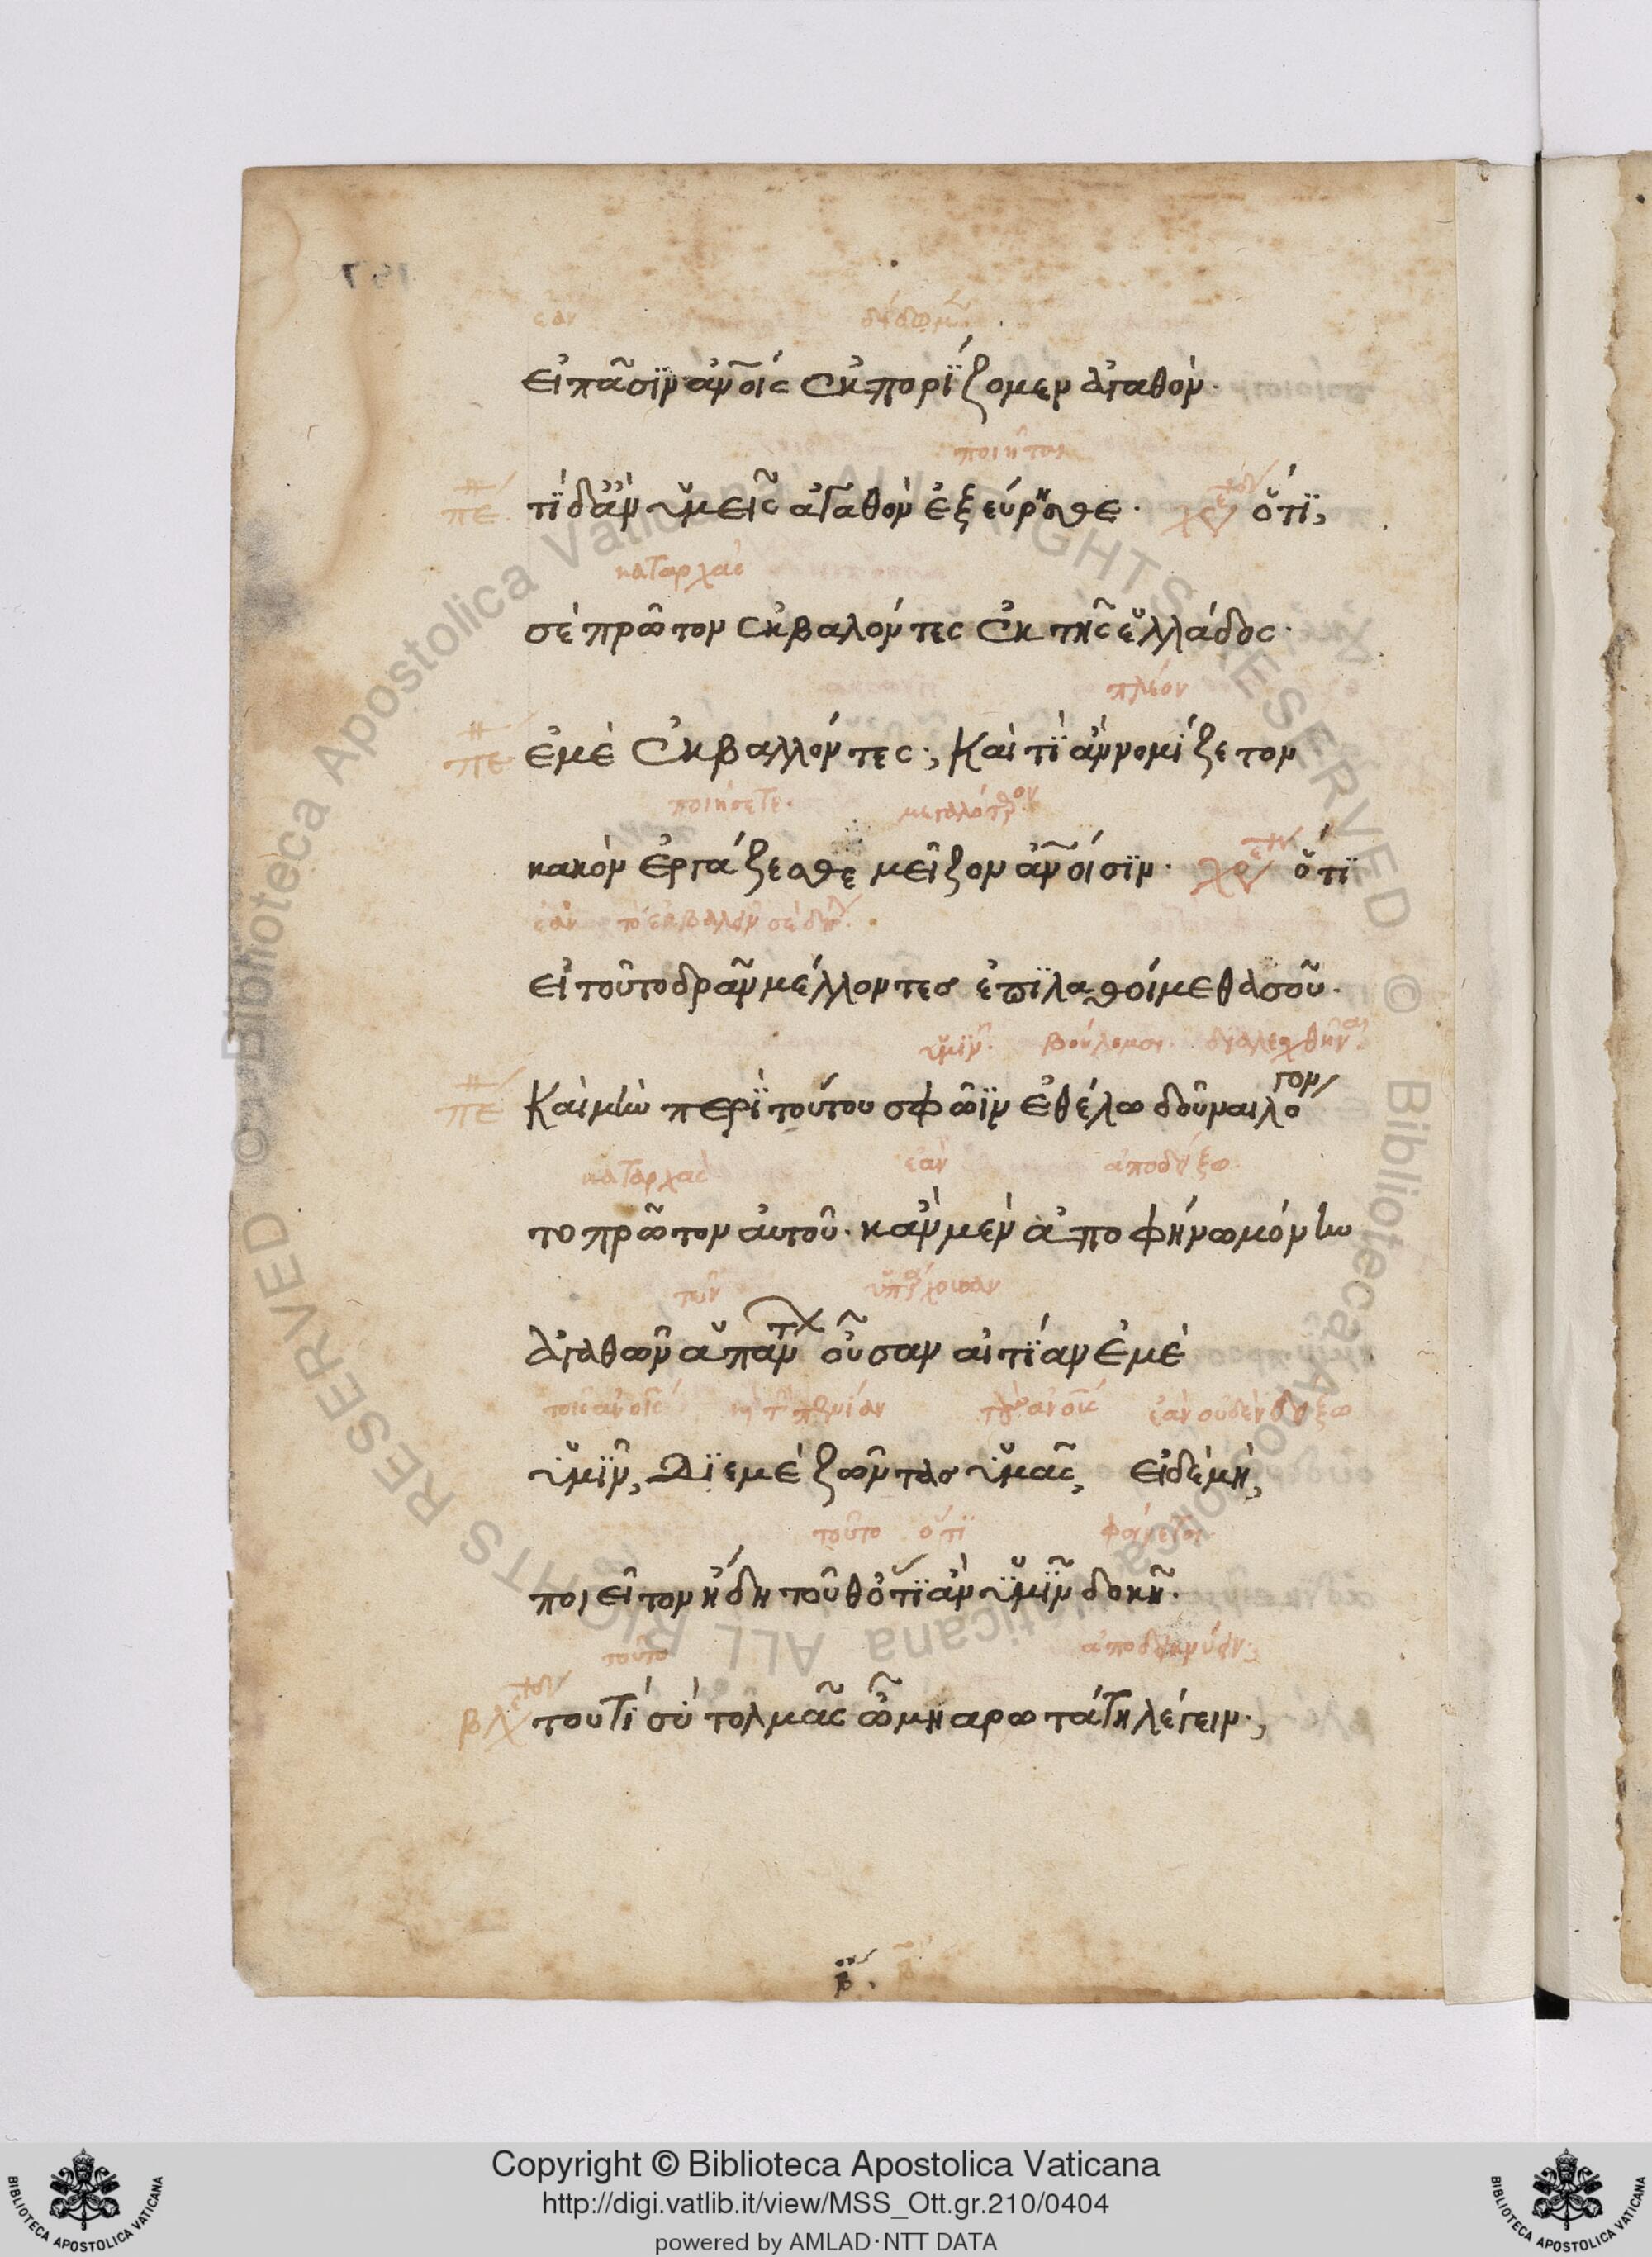 ἐὰν
εἰ πᾶσϊν ἀν͂οις ἐκπορΐζομεν ἀγαθόν·
ποιῆται
πε. τΐ δ' ἂν ὑμεῖς ἀγαθὸν ἐξεύρησθε· χρε ὅτϊ,
καταρχὰς
σὲ πρῶτον ἐκβαλόντες ἐκ τῆς ἑλλάδος·
πλέον
πε ἐμὲ ἐκβαλλόντες; καὶ τΐ ἂν νομίζετον
ποιήσετε. μεγαλότερον
κακὸν ἐργάζεσθε μεῖζον ἀν͂οισϊν· χρε ὅτϊ
ἐὰν τὸ ἐκβαλλεῖν σὲ δηλ.
εἰ τοῦτο δρᾶν μέλλοντες ἐπϊλαθοίμεθα σοῦ·
ὑμῖν· βούλομαι διαλεχθῆναι
πε καὶ μὴν περῒ τούτου σφῶϊν ἐθέλω δοῦναι λόγον
καταρχὰς ἐὰν ἀποδείξω
το πρῶτον αὐτοῦ· κἂν μὲν ἀποφήνω μόνην
τῶν ὑπάρχουσαν
ἀγαθῶν ἁπάντων οὖσαν αἰτΐαν ἐμὲ
τοῖς ἀν͂οις ἐὰν οὐδὲν δείξω
ὑμῖν, δϊ' ἐμέ ζῶντας ὑμᾶς, εἰ δὲ μὴ,
τοῦτο ὅτϊ φαίνεται
ποιεῖτον ἤδη τοῦθ' ὅτϊ ἂν ὑμῖν δοκῇ·
τοῦτο
βλ τουτὶ σὺ τολμᾶς ὦ μηαρωτάτη λέγειν;
β.
Copyright © Biblioteca Apostolica Vaticana
http://digi.vatlib.it/view/MSS_Ott.gr.210/0404
powered by AMLAD·NTT DATA